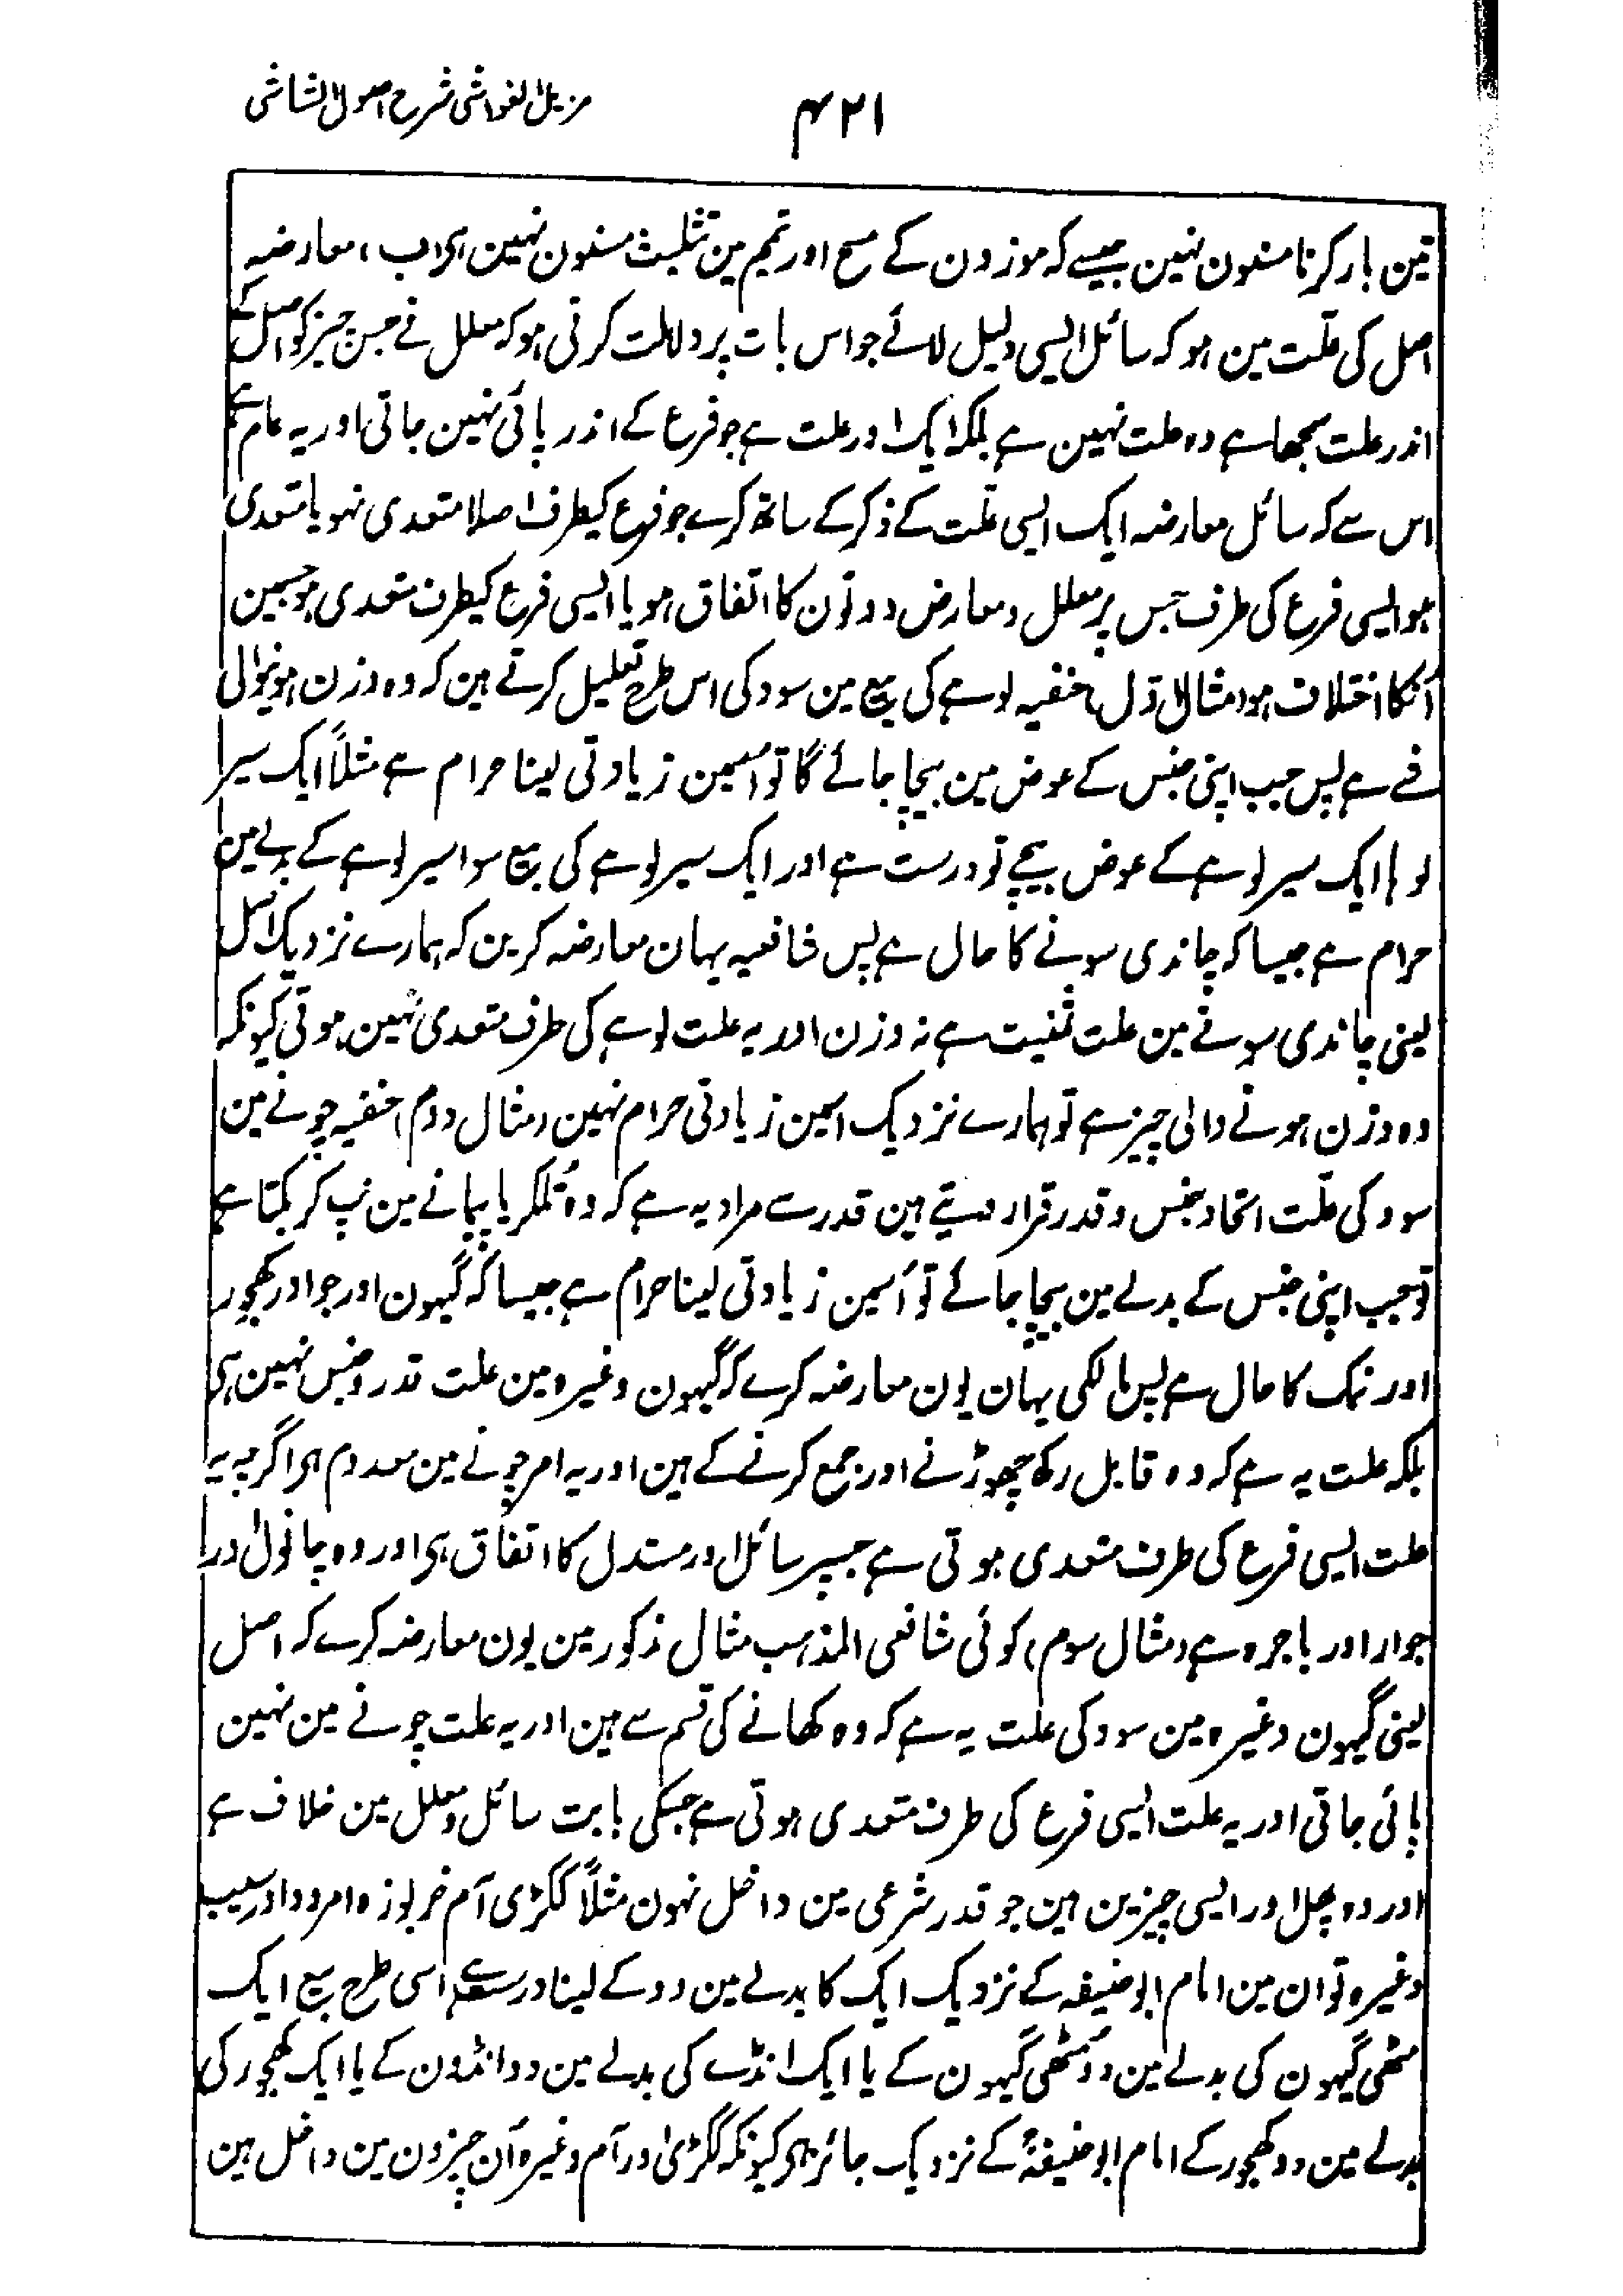 مزیل الغواشی شرح اصول الشاشی
۴۲۱
تین بار کرنا مسنون نہین جیسے کہ موزون کے مسح اور تیمم مین تثلیث مسنون نہین ہی (ب) معارضہ
اصل کی علّت مین ہو کہ سائل ایسی دلیل لائے جو اس بات پر دلالت کرتی ہو کہ معلل نے جس چیز کو اصل کے
اندر علت سمجھا ہے وہ علت نہین ہے بلکہ ایک اور علت ہے جو فرع کے اندر پائی نہین جاتی اور یہ عام ہے
اس سے کہ سائل معارضہ ایک ایسی علّت کے ذکر کے ساتھ کرے جو فرع کیطرف اصلا متعدی نہو یا متعدی
ہو ایسی فرع کی طرف جس پر معلل و معارض دونون کا اتفاق ہو یا ایسی فرع کیطرف متعدی ہو جسمین
اُنکا اختلاف ہو (مثال اول) حنفیہ لوہے کی بیع مین سود کی اس طرح تعلیل کرتے ہین کہ وہ وزن ہونیوالی
شے ہے پس جب اپنی جنس کے عوض مین بیچا جائے گا تو اُسمین زیادتی لینا حرام ہے مثلاً ایک سیر
لوہا ایک سیر لوہے کے عوض بیچے تو درست ہے اور ایک سیر لوہے کی بیع سوا سیر لوہے کے بدلے مین
حرام ہے جیسا کہ چاندی سونے کا حال ہے پس شافعیہ یہان معارضہ کرین کہ ہمارے نزدیک اصل
یعنی چاندی سونے مین علت ثمنیت ہے نہ وزن اور یہ علت لوہے کی طرف متعدی نہین ہوتی کیونکہ
وہ وزن ہونے والی چیز ہے تو ہمارے نزدیک اسمین زیادتی حرام نہین (مثال دوم) حنفیہ چونے مین
سود کی علّت اتحاد جنس و قدر قرار دیتے ہین قدر سے مراد یہ ہے کہ وہ تُلکر یا پیمانے مین نپ کر بکتا ہے
تو جب اپنی جنس کے بدلے مین بیچا جائے تو اُسمین زیادتی لینا حرام ہے جیسا کہ گیہون اور جو اور کھجور
اور نمک کا حال ہے پس مالکی یہان یون معارضہ کرے کہ گیہون وغیرہ مین علت قدر و جنس نہین ہی
بلکہ علت یہ ہے کہ وہ قابل رکھ چھوڑنے اور جمع کرنے کے ہین اور یہ امر چونے مین معدوم ہی اگرچہ یہ
علت ایسی فرع کی طرف متعدی ہوتی ہے جسپر سائل اور مستدل کا اتفاق ہی اور وہ چانول اور
جوار اور باجرہ ہے (مثال سوم) کوئی شافعی المذہب مثال مذکور مین یون معارضہ کرے کہ اصل
یعنی گیہون وغیرہ مین سود کی علت یہ ہے کہ وہ کھانے کی قسم سے ہین اور یہ علت چونے مین نہین
پائی جاتی اور یہ علت ایسی فرع کی طرف متعدی ہوتی ہے جسکی بابت سائل و معلل مین خلاف ہے
اور وہ پھل اور ایسی چیزین ہین جو قدر شرعی مین داخل نہون مثلاً ککڑی آم خربوزہ امرود اور سیب
وغیرہ تو ان مین امام ابو حنیفہ کے نزدیک ایک کا بدلے مین دو کے لینا درست ہے اسی طرح بیع ایک
مٹھی گیہون کی بدلے مین دو مٹھی گیہون کے یا ایک انڈے کی بدلے مین دو انڈون کے یا ایک کھجور کی
بدلے مین دو کھجور کے امام ابو حنیفہؒ کے نزدیک جائز ہی کیونکہ ککڑی اور آم وغیرہ اُن چیزون مین داخل ہین